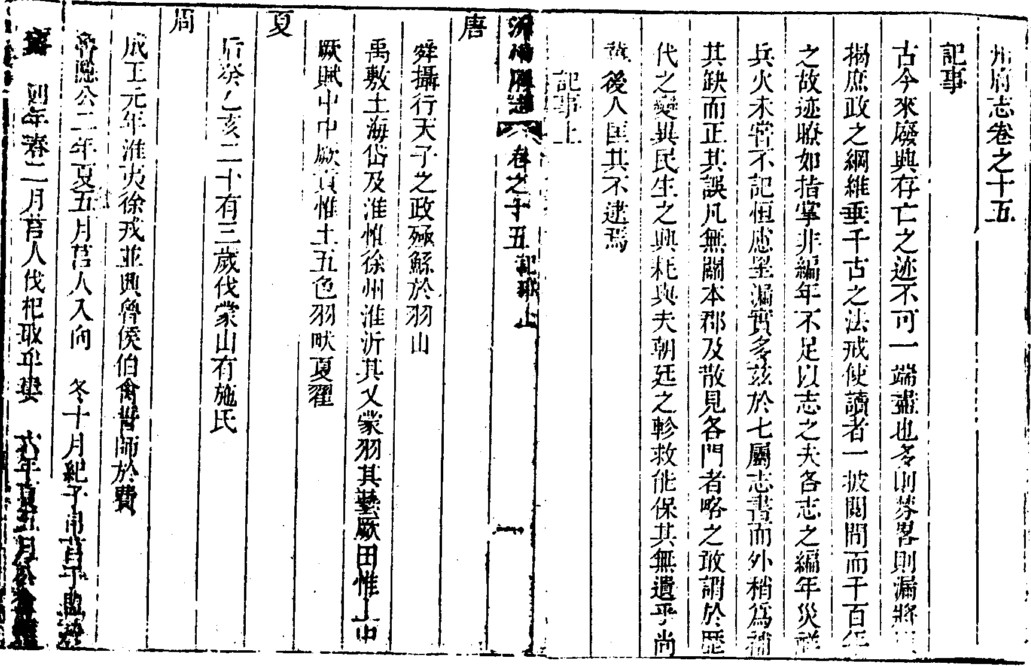 州府志卷之十五
記事
古今來廢興存亡之迹不可一端盡也多則蕪畧則漏將
揭庶政之綱維垂千古之法戒使讀者一披閱間而千百年
之故迹瞭如指掌非編年不足以志之夫各志之編年災祥
兵火未嘗不記恒慮罣漏實多茲於七屬志書而外稍爲補
其缺而正其誤凡無關本郡及散見各門者略之敢謂於歷
代之變與民生之興耗與夫朝廷之軫救能保其無遺乎尚
冀後人匡其不逮焉
記事上
沂州府志 卷之十五 記事上 一
唐
舜攝行天子之政殛鯀於羽山
禹敷土海岱及淮惟徐州淮沂其乂蒙羽其藝厥田惟上中
厥賦中中厥貢惟土五色羽畎夏翟
夏
后癸乙亥二十有三歲伐蒙山有施氏
周
成王元年淮夷徐戎並興魯侯伯禽誓師於費
魯隱公二年夏五月莒人入向 冬十月紀子帛莒子盟
四年春二月莒人伐杞取牟婁 六年夏五月公會